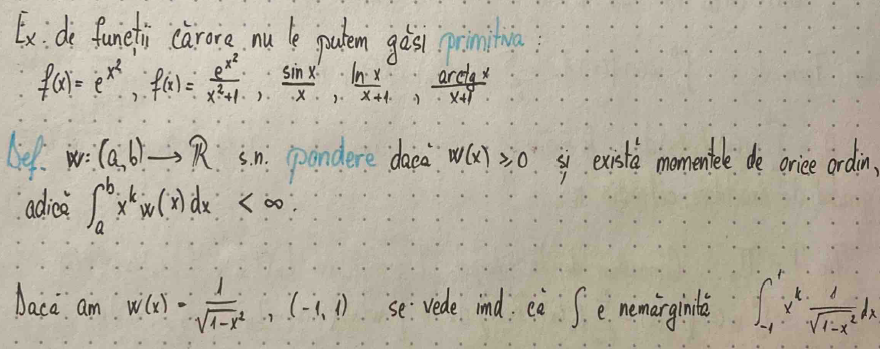 Ex: de funcții cărora nu le putem găsi primitiva:
f(x) = e^{x^2}, f(x) = \frac{e^{x^2}}{x^2+1}, \frac{\sin x}{x}, \frac{\ln x}{x+1}, \frac{arctg x}{x+1}
Def. w: (a,b) → ℝ s.n. pondere dacă w(x) ≥ 0 și există momentele de orice ordin,
adică \int_a^b x^k w(x) dx < ∞.
Dacă am w(x) = \frac{1}{\sqrt{1-x^2}}, (-1,1) se vede imd. că ∫ e nemărginită \int_{-1}^{1} x^k \frac{1}{\sqrt{1-x^2}} dx